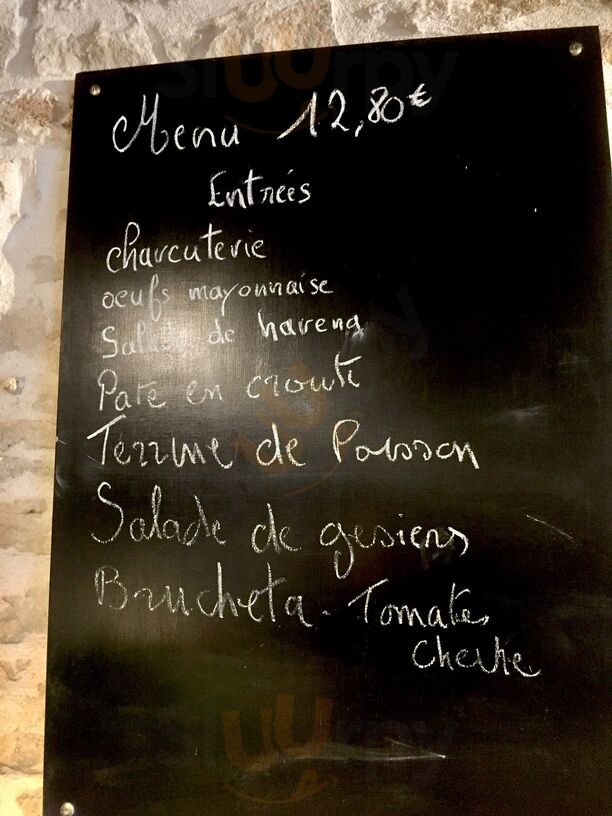 Menu 12,80€
Entrées
charcuterie
oeufs mayonnaise
Salade de hareng
Pate en croute
Terrine de Poisson
Salade de gesiers
Brucheta. Tomate
chevre
sluurpy
sluurpy
sluurpy